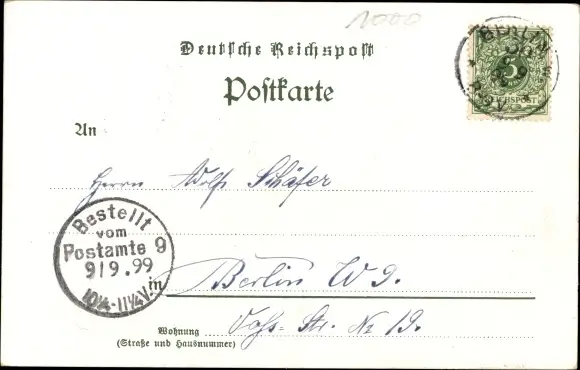 1000
Deutsche Reichspost
Postkarte
BERLIN
5
REICHSPOST
An
Herrn Adolf Schäfer
Bestellt
vom
Postamte 9
9/9.99
10¼-11½V.
in Berlin W 9.
Wohnung
(Straße und Hausnummer)
Voss-Str. No 19.